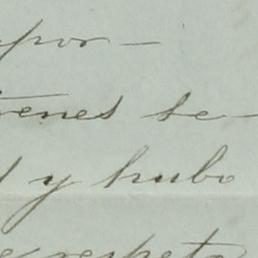 por —
enes se
y hubo
respeto